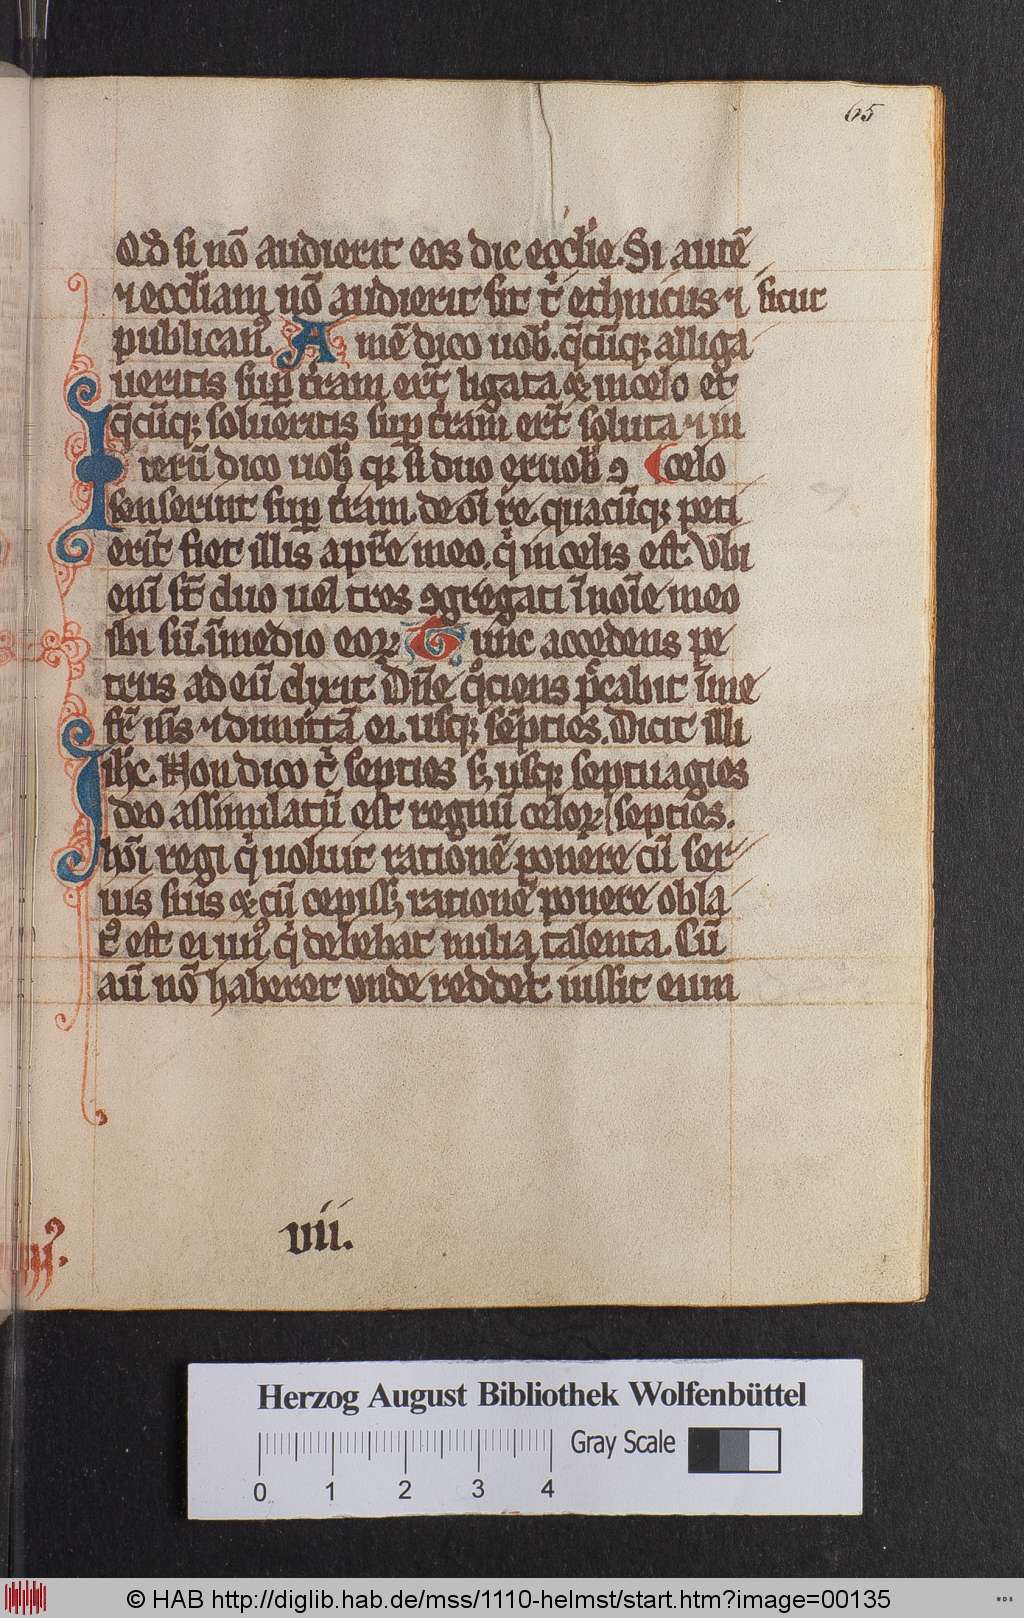 65
Qđ si nō audierit eos dic eccl'ie. Si autē
⁊ eccl'iam nō audierit sit t' ethnicus ⁊ sicut
publican9. Amē dico uob'. q̄cūq; alliga
ueritis sup t'ram er̄t ligata ⁊ in celo et
q̄cūq; solueritis sup t'ram er̄t soluta ⁊ in
celo
Iterū dico uob' q; si duo ex uob' ꝯ
senserint sup t'ram de oī re quacūq; peti
erīt fiet illis a pr̄e meo. q' in celis est. Vbi
enī st̄ duo uel tres ꝯgregati ī noīe meo
ibi sū ī medio eoꝝ. Tunc accedens pe
trus ad eū dixit. Dn̄e q°ciens p̄cabit' ī me
fr̄ m̄s ⁊ dimittā ei. usq; septies. Dicit illi
ih̄c. Non dico t' septies s; usq; septuagies
septies.
Ideo assimilatū est regnū celoꝝ
hōi regi q' uoluit rationē ponere cū ser
uis suis ⁊ cū cepiss; rationē ponere obla
t9 est ei un9 q' debebat milia talenta. Cū
aū nō haberet vnde reddet. iussit eum
vii.
Herzog August Bibliothek Wolfenbüttel
Gray Scale
0 1 2 3 4
© HAB http://diglib.hab.de/mss/1110-helmst/start.htm?image=00135